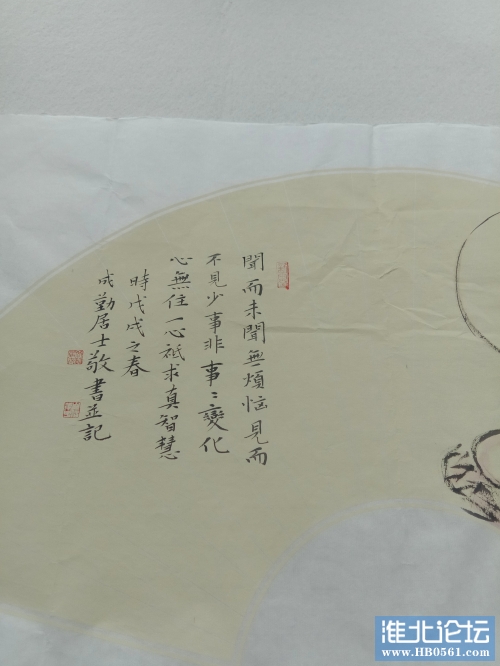 聞而未聞無煩惱見而
不見少事非事〻變化
心無住一心祗求真智慧
時戊戌之春
成勤居士敬書並記
淮北论坛
www.HB0561.com